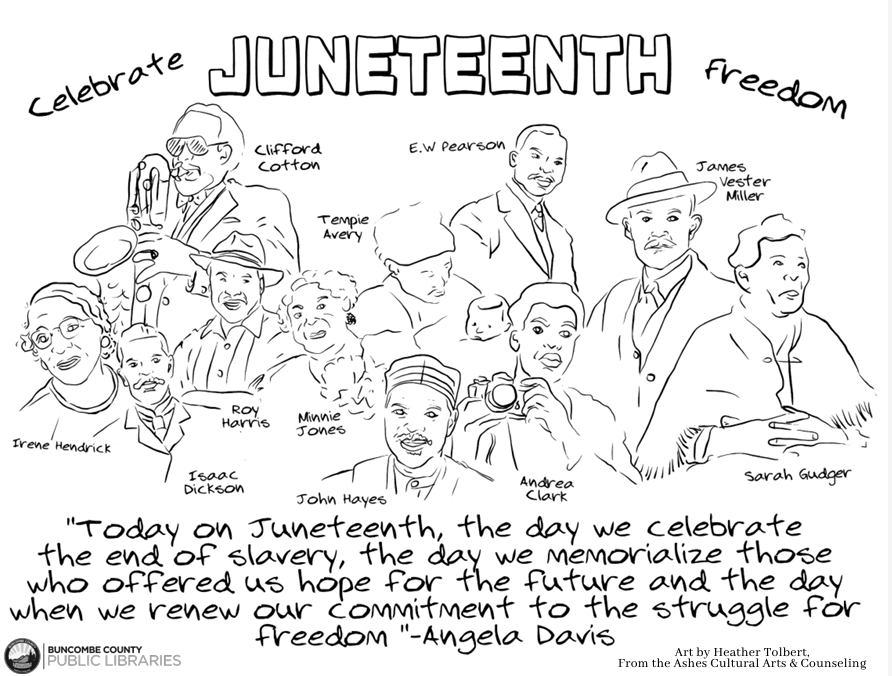 Celebrate JUNETEENTH freedom
Clifford
Cotton
E.W Pearson
James
Vester
Miller
Tempie
Avery
Roy
Harris
Minnie
Jones
Irene Hendrick
Isaac
Dickson
John Hayes
Andrea
Clark
Sarah Gudger
"Today on Juneteenth, the day we celebrate
the end of slavery, the day we memorialize those
who offered us hope for the future and the day
when we renew our commitment to the struggle for
freedom "-Angela Davis
BUNCOMBE COUNTY
PUBLIC LIBRARIES
Art by Heather Tolbert,
From the Ashes Cultural Arts & Counseling